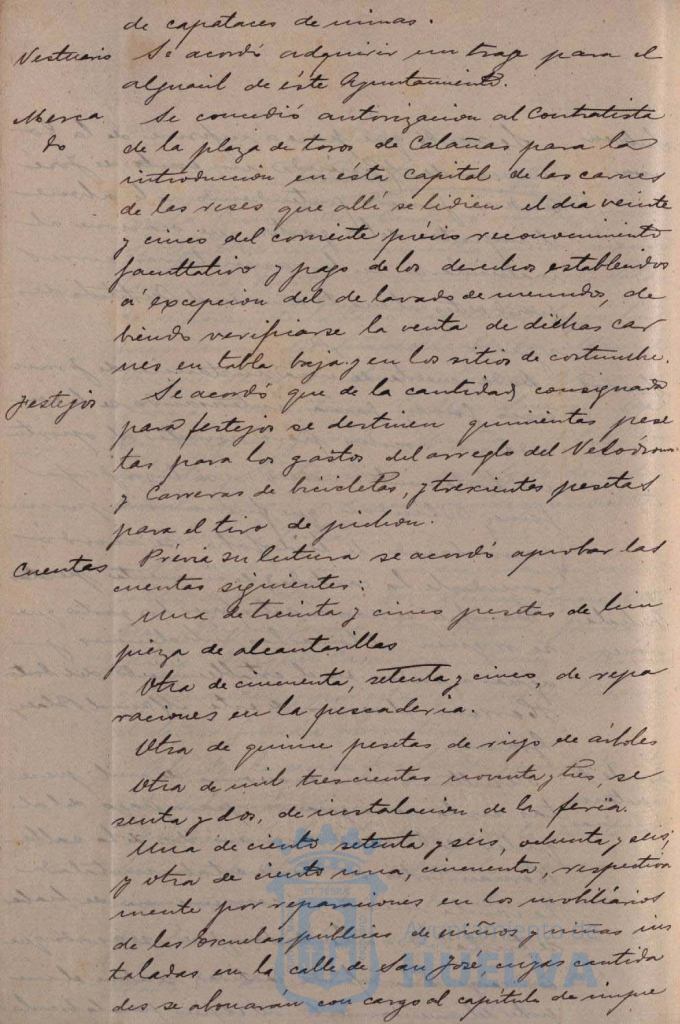 de capataces de minas.
Vestuario Se acordó adquirir un trage para el
alguacil de éste Ayuntamiento.
Merca Se concedió autorizacion al contratista
do de la plaza de toros de Calañas para la
introducción en ésta Capital de las carnes
de las reses que allí se lidien el dia veinte
y cinco del corriente prévio reconocimiento
facultativo y pago de los derechos establecidos
á excepcion del de lavado de menudos, de
biendo verificarse la venta de dichas car
nes en tabla baja y en los sitios de costumbre.
Festejos Se acordó que de la cantidad consignada
para festejos se destinen quinientas pese
tas para los gastos del arreglo del Velódromo
y Carreras de bicicletas, y trescientas pesetas
para el tiro de pichon.
Cuentas Prévia su lectura se acordó aprobar las
cuentas siguientes:
Una de treinta y cinco pesetas de lim
pieza de alcantarillas
Otra de cincuenta, setenta y cinco, de repa
raciones en la pescaderia.
Otra de quince pesetas de riego de árboles
Otra de mil trescientas noventa y tres, se
senta y dos, de instalacion de la feria.
Una de ciento setenta y seis, ochenta y seis,
y otra de ciento una, cincuenta, respectiva
mente por reparaciones en los mobiliarios
de las Escuelas públicas de niños y niñas ins
taladas en la calle de San José, cuyas cantida
des se abonarán con cargo al capítulo de impre
Ayuntamiento de
HUELVA